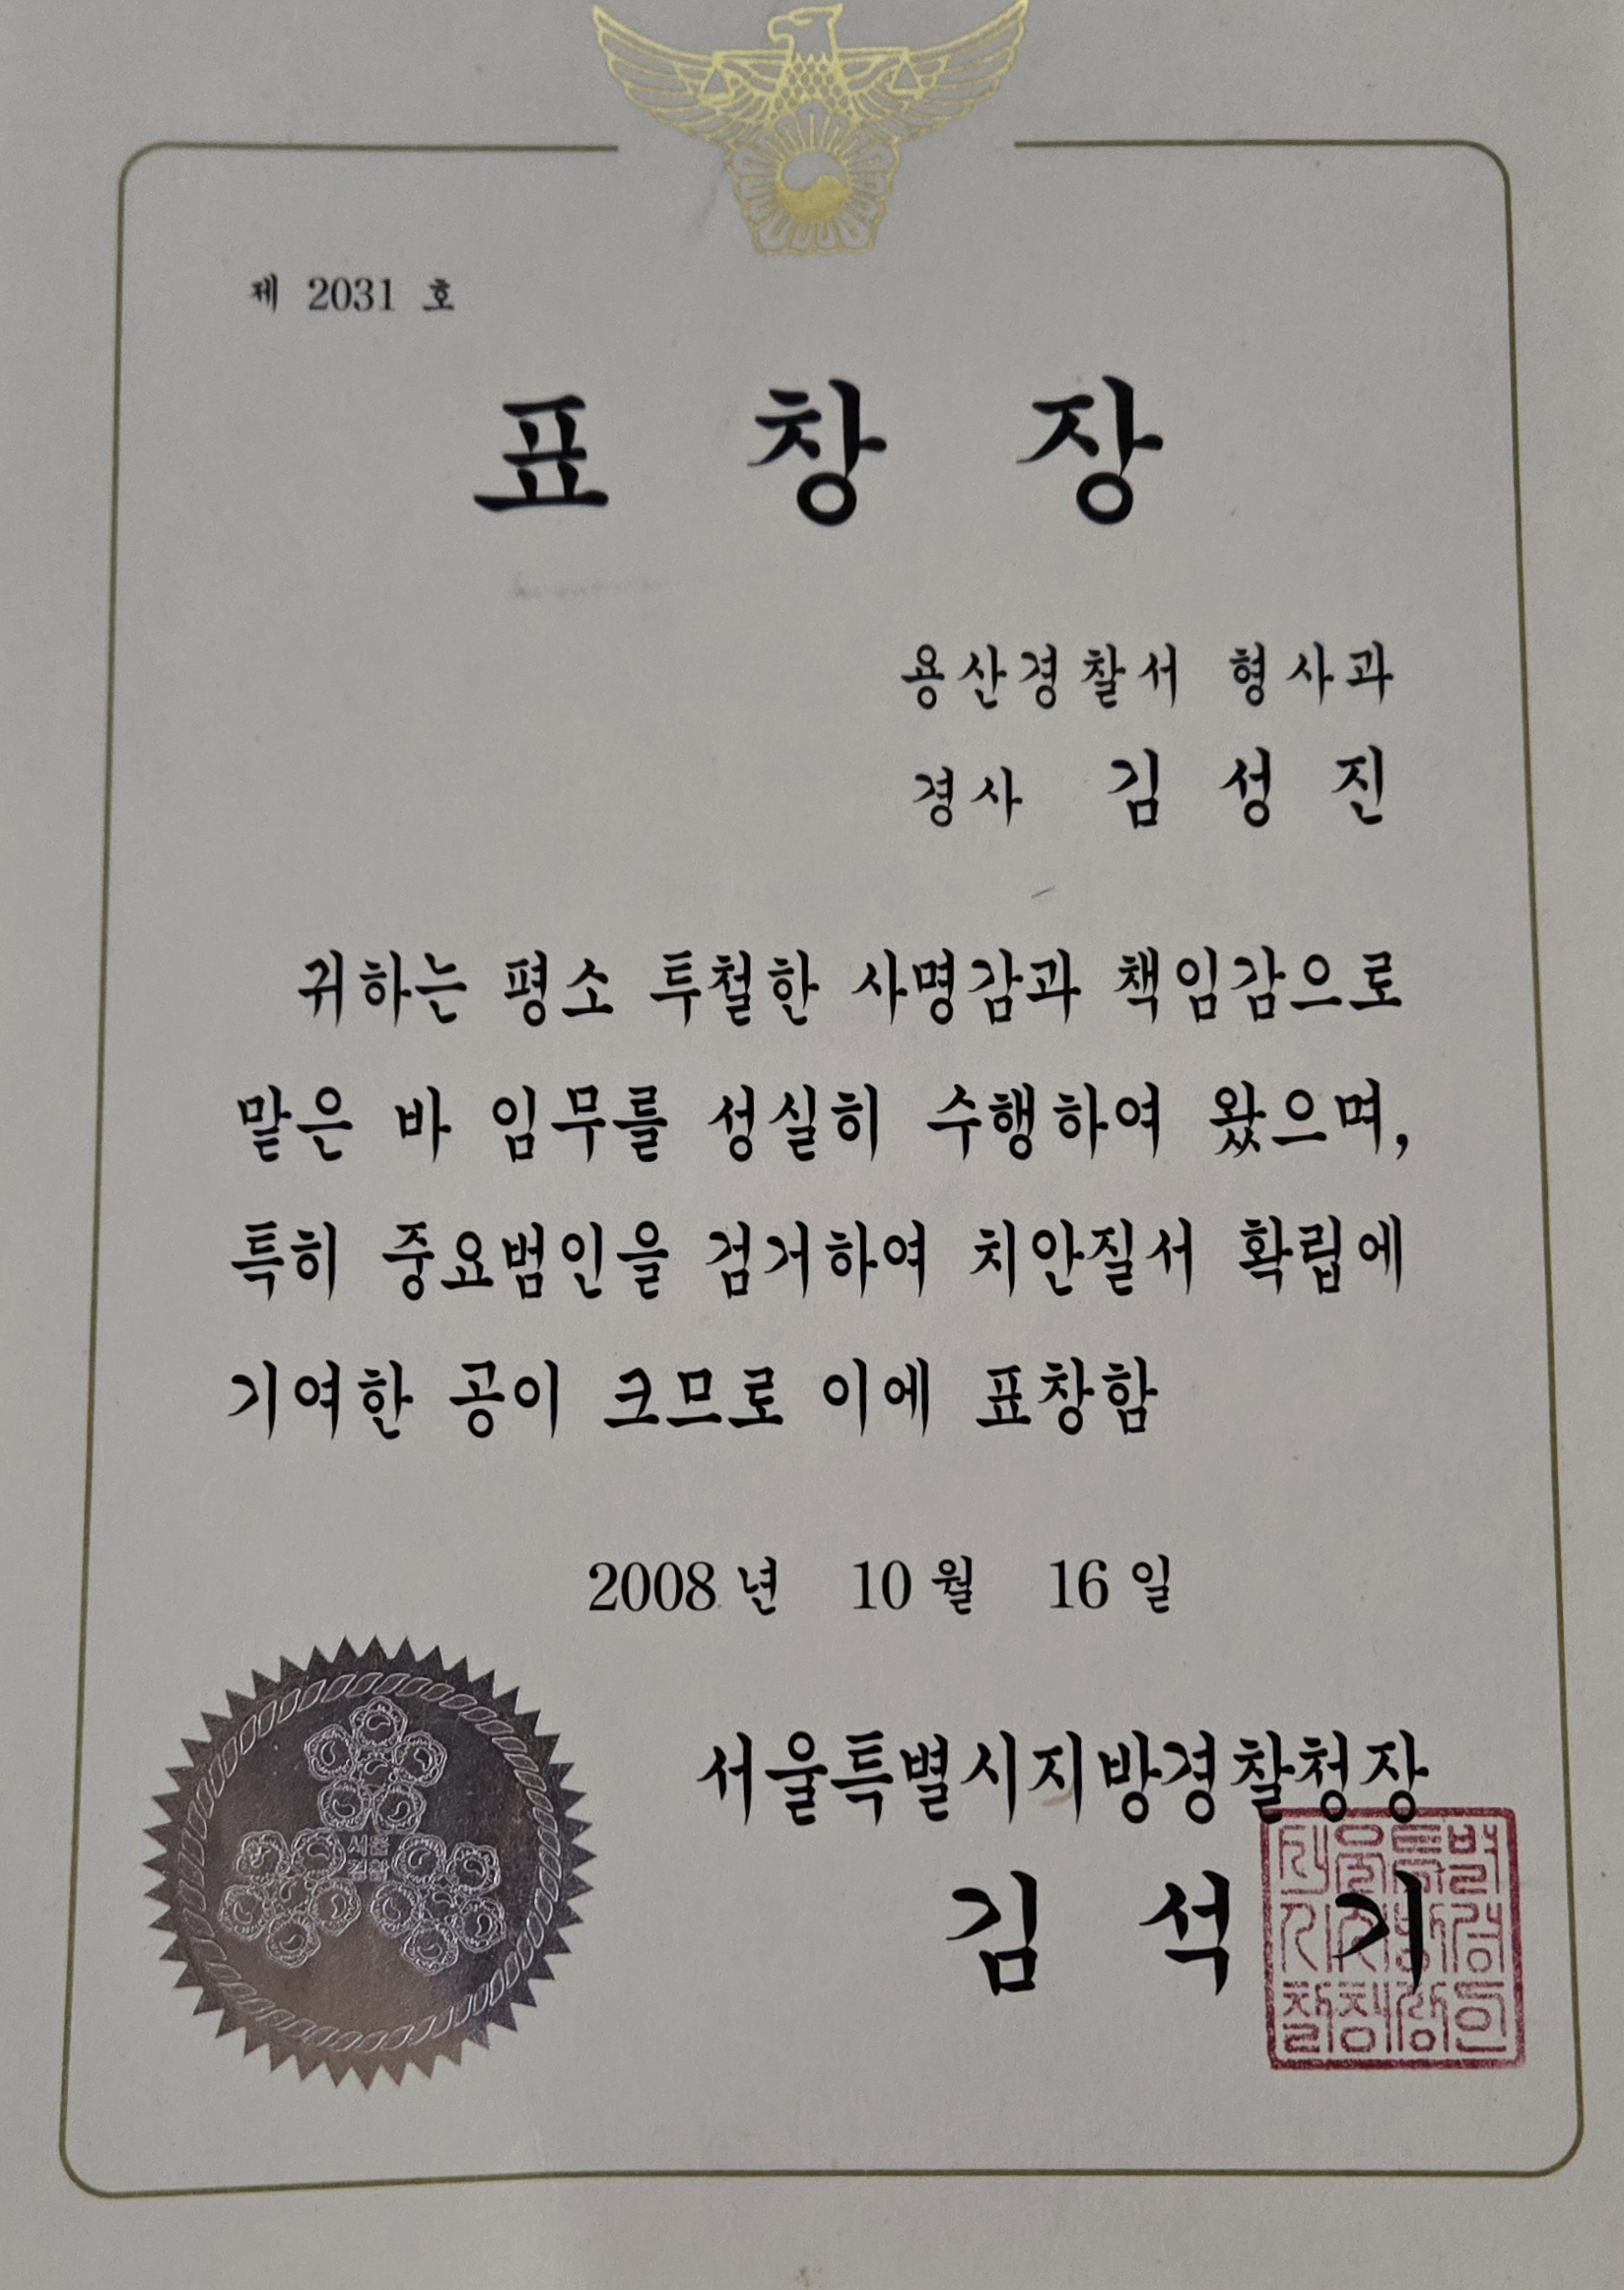 제 2031 호
표 창 장
용산경찰서 형사과
경사 김 성 진
귀하는 평소 투철한 사명감과 책임감으로
맡은 바 임무를 성실히 수행하여 왔으며,
특히 중요범인을 검거하여 치안질서 확립에
기여한 공이 크므로 이에 표창함
2008년 10월 16일
서울특별시지방경찰청장
김 석 기
서울특별
시지방경
찰청장인
서울
경찰